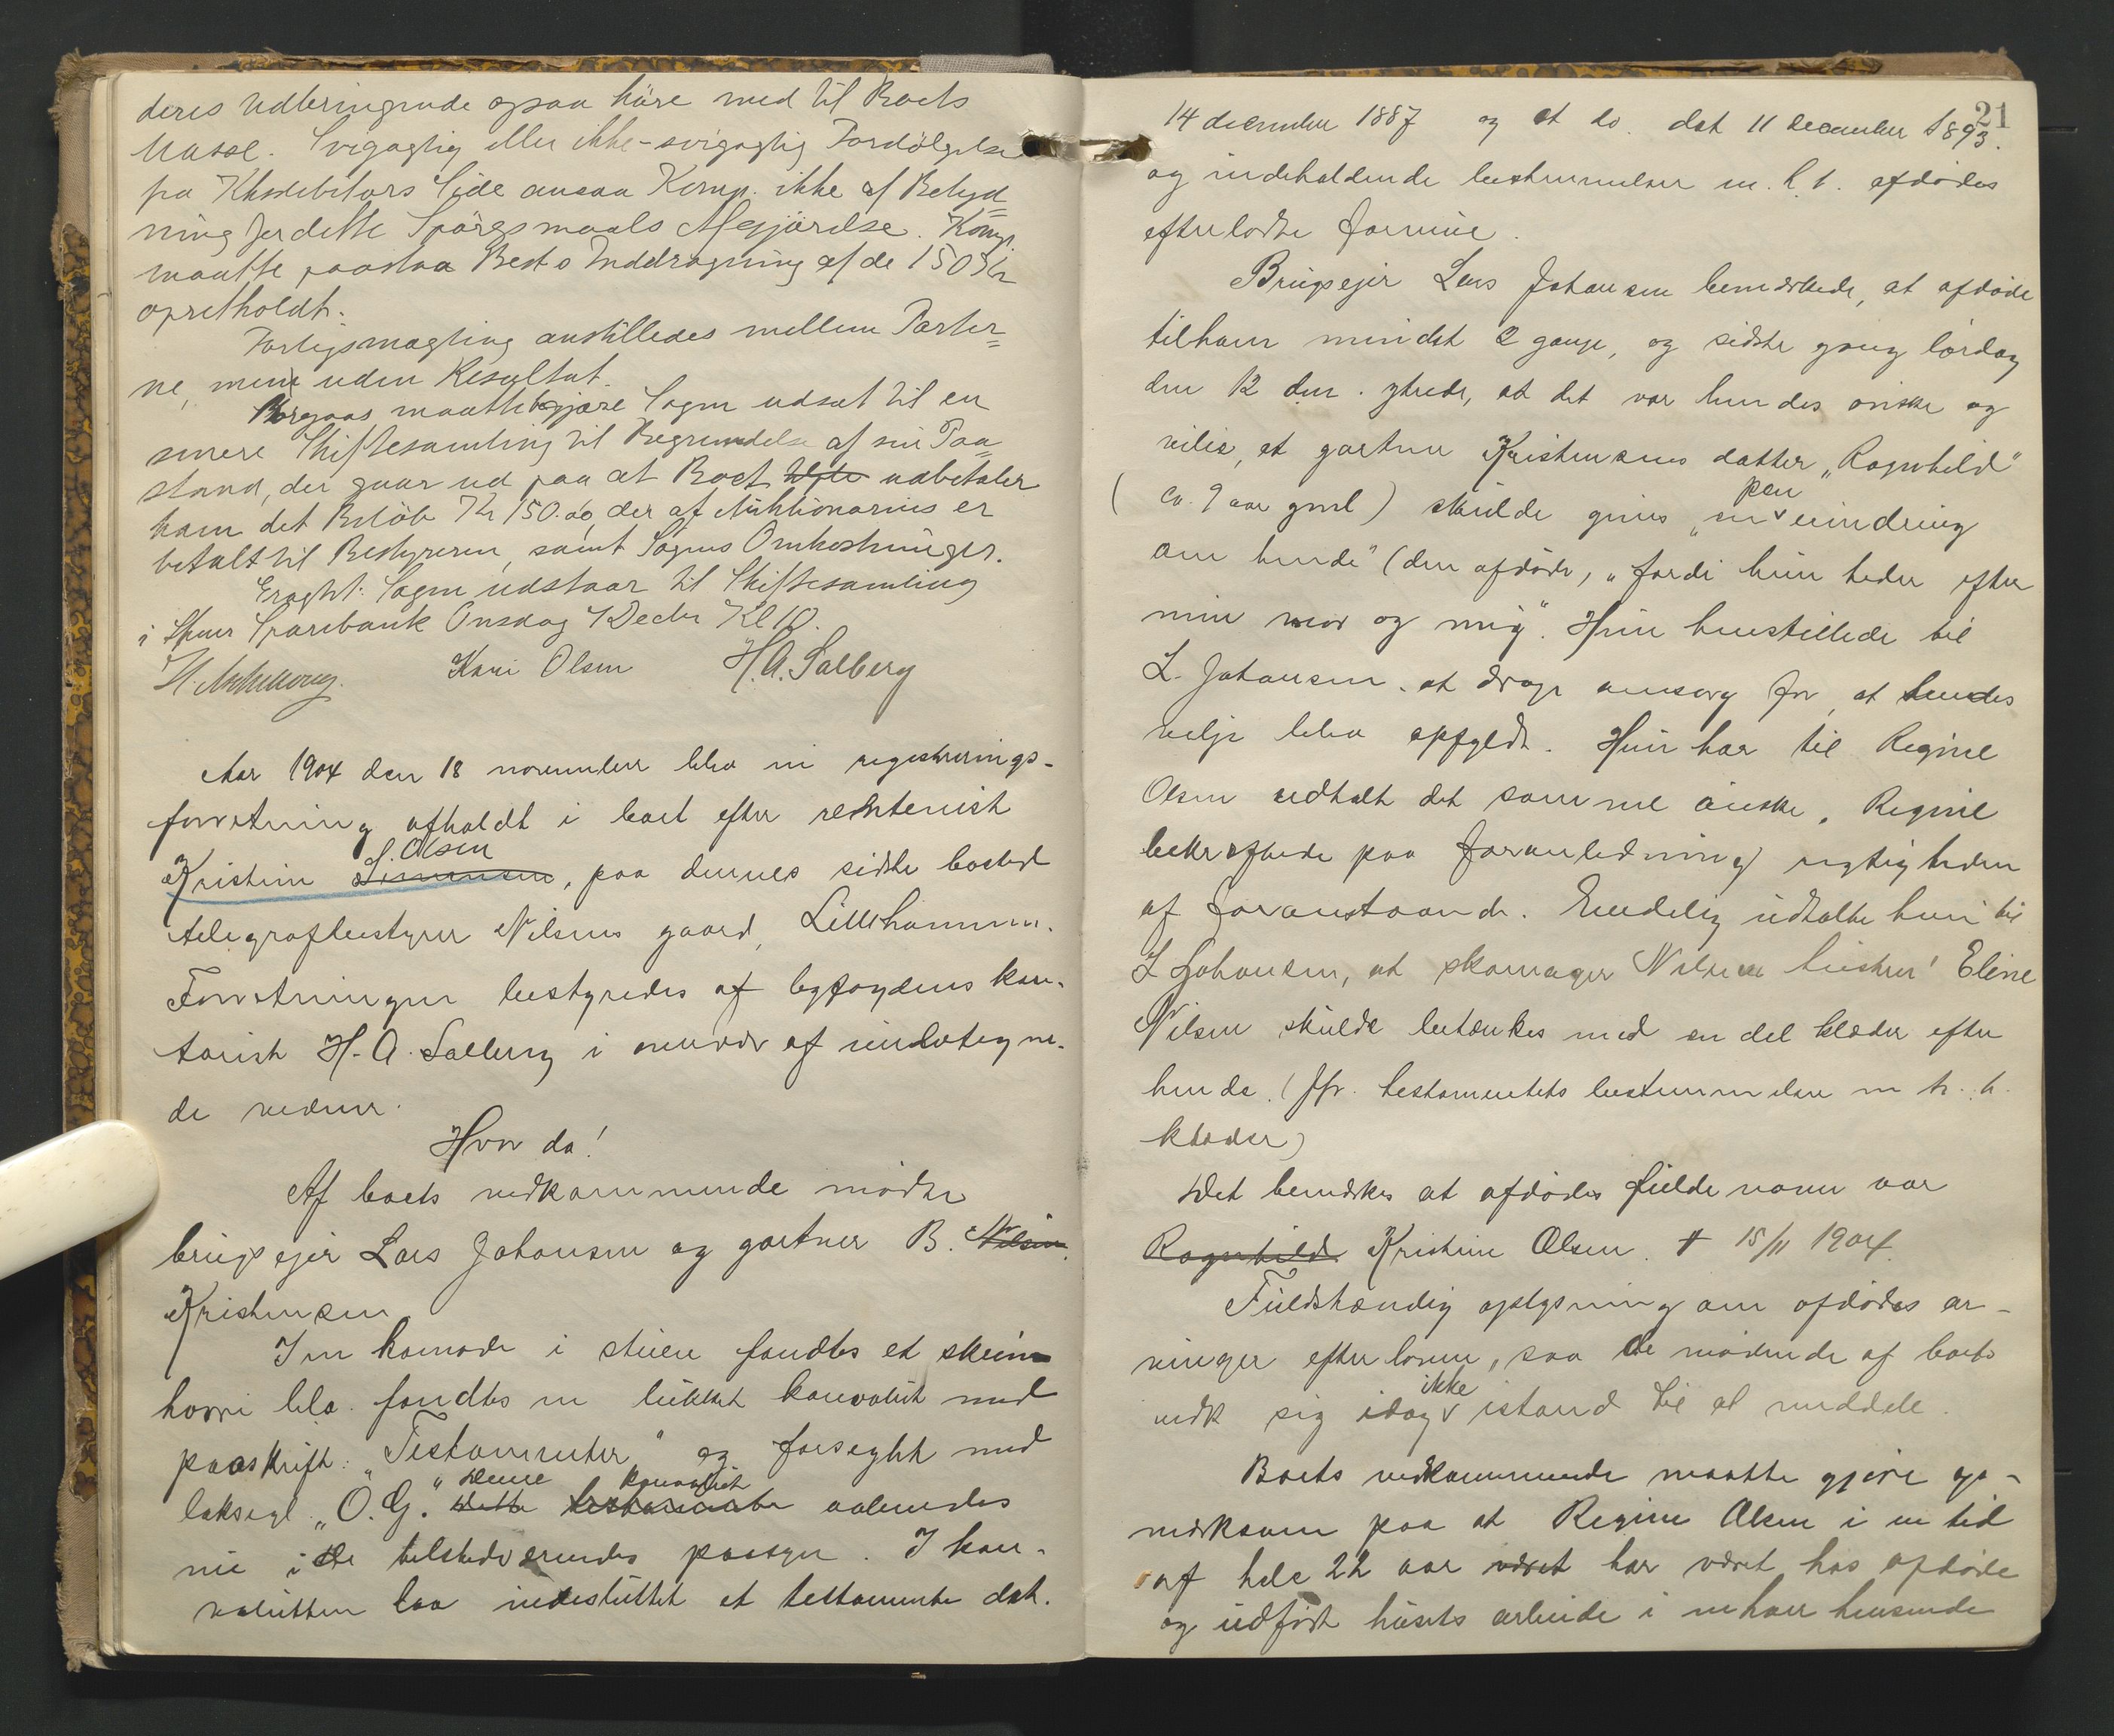 deres Udbringende ogsaa höre med til Boets
Masse. Svigagtig eller ikke-svigagtig Fordölgelse
fra Side ansaa Komp. ikke af Betyd=
ning for dette Spörgsmaals Afgjörelse. Komp.
maatte paastaa Best's Inddragning af de 150 Kr
opretholdt.
Forligsmægling anstilledes mellem Parter=
ne, men uden Resultat.
maatte begjære Sagen udsat til en
senere Skiftesamling til Begrundelse af sin Paa=
stand, der gaar ud paa at Boet udbetaler
ham det Belöb Kr 150.00, der af Auktionarius er
betalt til Bestyreren, samt Sagens Omkostninger.
Eragtet: Sagen udstaar til Skiftesamling
i Sparebank Onsdag 7 Decbr Kl 10.
Kari Olsen H. A. Salberg
Aar 1904 den 18 november blev en registrerings-
forretning afholdt i boet efter rentenist
Olsen
Kristine Simensen, paa dennes sidste bosted
telegrafbestyrer Nilsens gaard, Lillehammer.
Forretningen bestyredes af byfogdens kon-
torist H. A. Salberg i nærvær af undertegne-
de vidner.
Hvor da!
Af boets vedkommende mødte
brugseier Lars Johansen og gartner B. Nilsen.
Kristensen
I en komode i stuen fandtes et skrin
hvori bl.a. fandtes en lukket konvolut med
paaskrift: "Testamenter" og forseglet med
Denne konvolut
laksegl "O. G." Dette testamente aabnedes
nu i de tilstedeværendes paasyn. I kon-
volutten laa indesluttet et testamente dat.
21
14 december 1887 og et do. dat 11 december 1893.
og indeholdende bestemmelser m. h. t. afdødes
efterladte formue.
Brugseier Lars Johansen bemærkede, at afdøde
til ham mindst 2 gange, og sidste gang lördag
den 12 dns. ytrede, at det var hendes önske og
vilje, at gartner Kristensens datter "Ragnhild"
pen
(ca. 9 aar gml) skulde gives "en erindring
om hende" (den afdøde, "fordi hun heder efter
min mor og mig". Hun henstillede til
L. Johansen at drage omsorg for, at hendes
vilje blev opfyldt. Hun har til Regine
Olsen udtalt det samme önske. Regine
bekræftede paa foranledning rigtigheden
af foranstaaende. Endelig udtalte hun til
L Johansen, at skomager Nilsens hustru Eline
Nilsen skulde betænkes med en del klæder efter
hende. (Jfr. testamentets bestemmelser m. h. t.
klæder)
Det bemerkes at afdødes fulde navn var
Ragnhild Kristine Olsen. † 15/11 1904.
Fuldstændig oplysning om afdødes ar-
vinger efter loven, saa de mödende af boets
ikke
vedk sig idag istand til at meddele.
Boets vedkommende maatte gjøre op-
merksom paa at Regine Olsen i en tid
af hele 22 aar været har været hos afdøde
og udført husets arbeide i enhver henseende